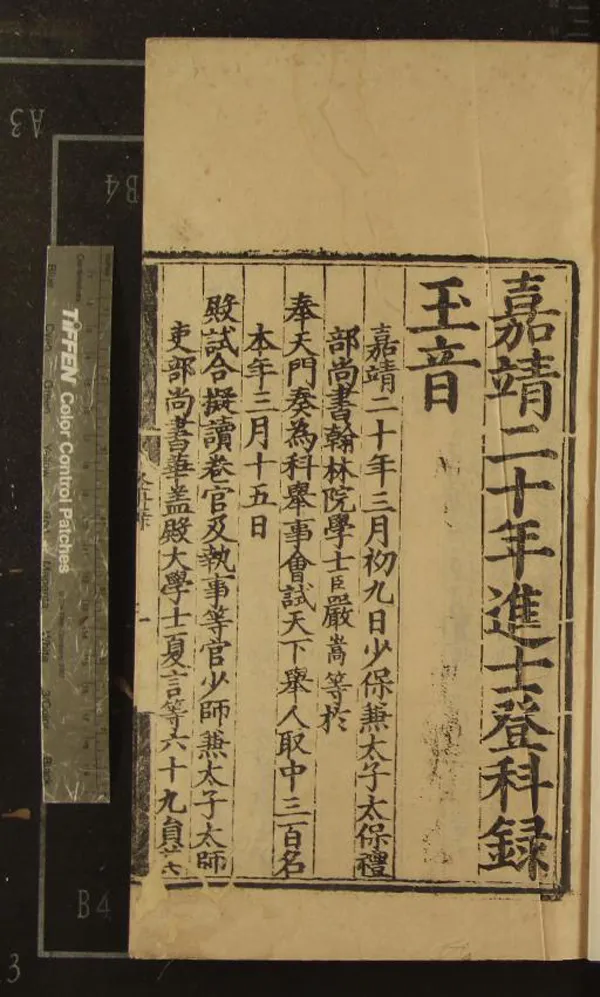 嘉靖二十年進士登科録
玉音
嘉靖二十年三月初九日少保兼太子太保禮
部尚書翰林院學士臣嚴嵩等於
奉天門奏為科舉事會試天下舉人取中三百名
本年三月十五日
殿試合擬讀卷官及執事等官少師兼太子太師
吏部尚書華盖殿大學士夏言等六十九員
TIFFEN Color Control Patches
A3
B4
B4